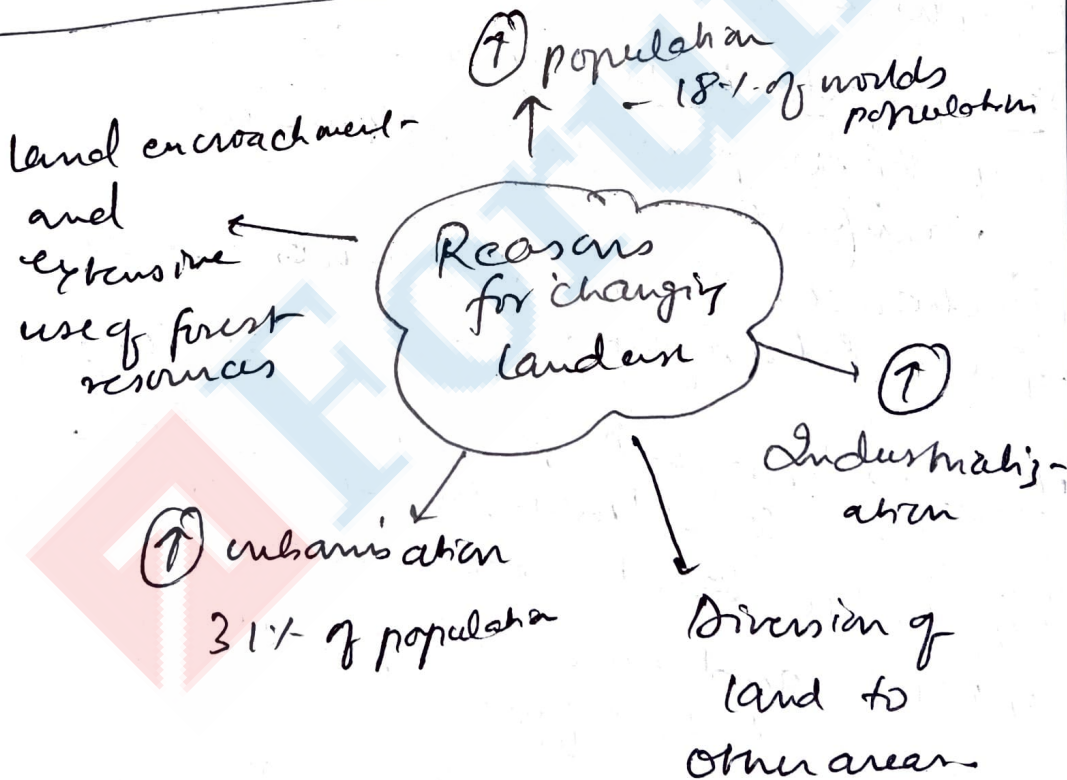 ↑ population
- 18% of worlds
population
Land encroachment
and
extensive
use of forest
resources
Reasons
for changing
landuse
↑
Industrializ-
ation
↑ urbanisation
31% of population
Diversion of
land to
other areas
Forum